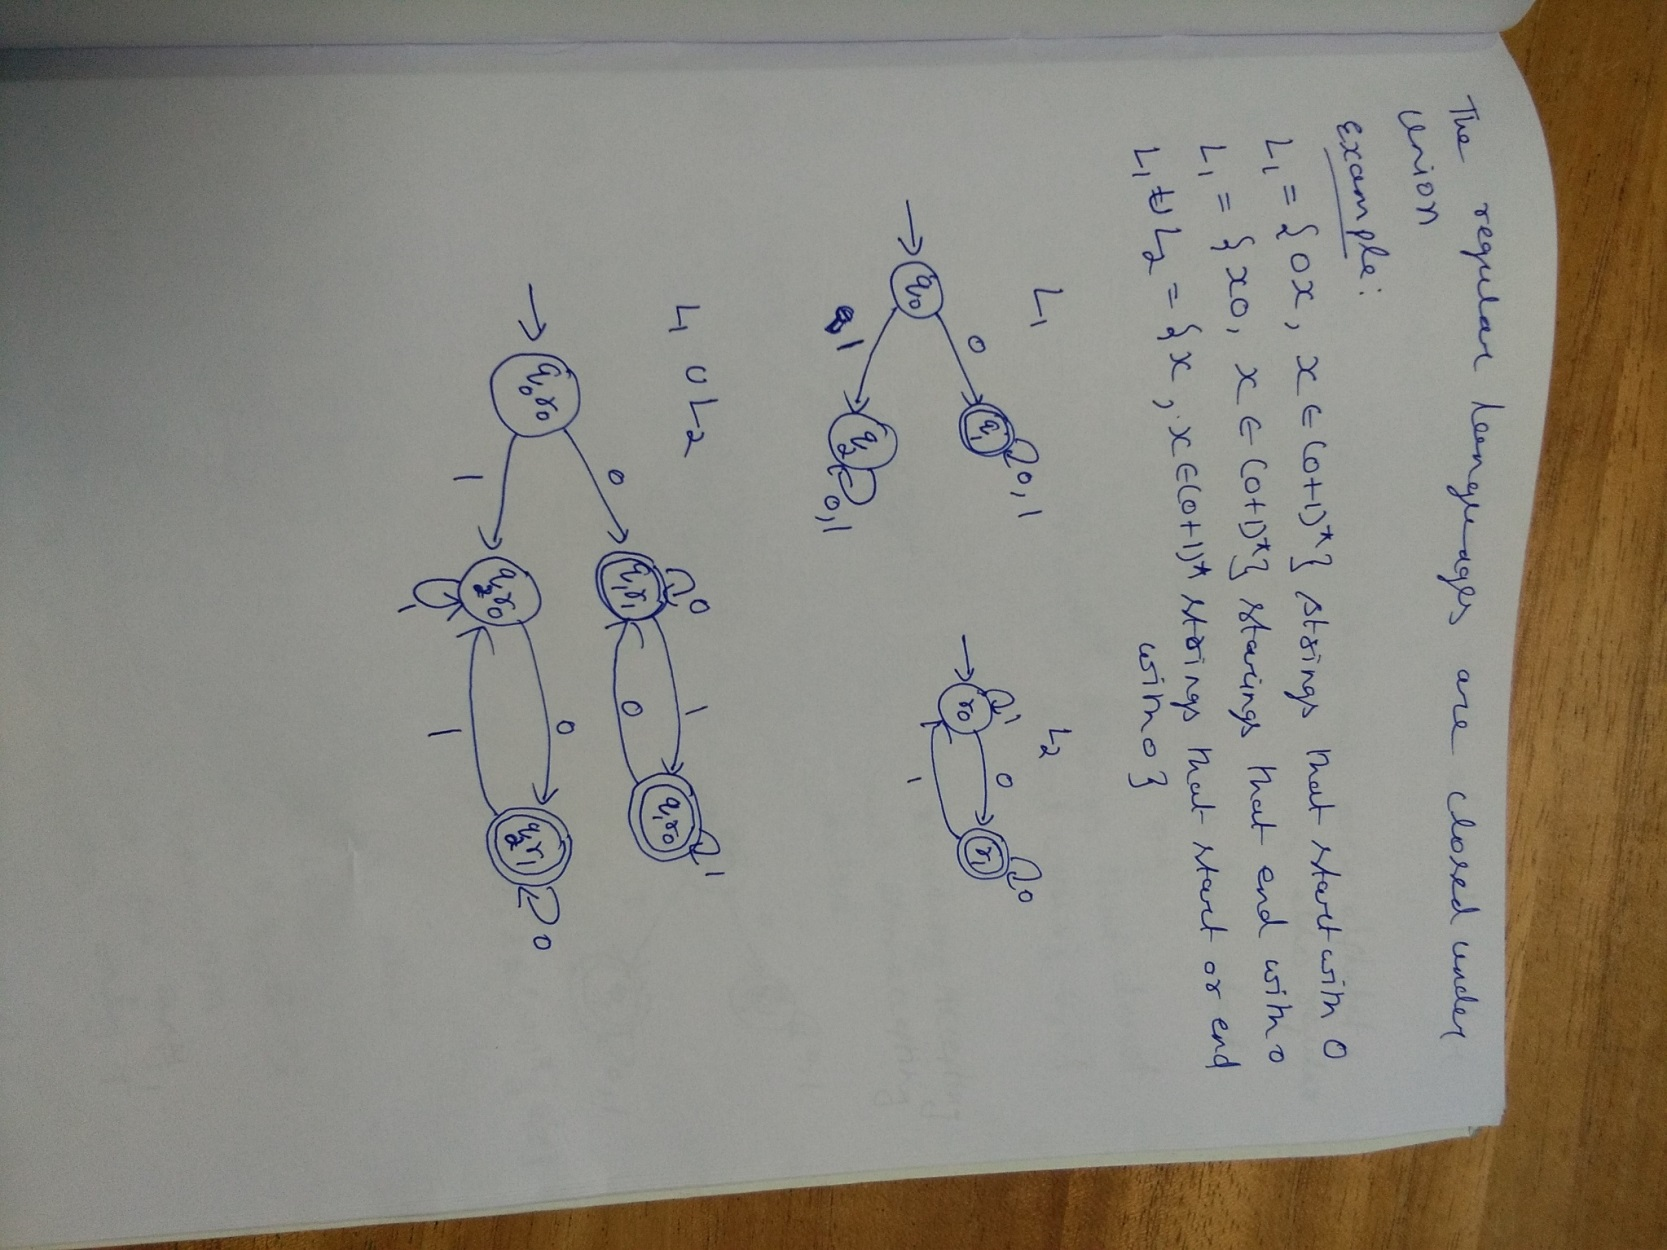 The regular languages are closed under
union
Example:
L₁ = {0x, x ∈ (0+1)*} strings that start with 0
L₁ = {x0, x ∈ (0+1)*} strings that end with 0
L₁ ∪ L₂ = {x, x ∈ (0+1)* strings that start or end
with 0}
L₁
L₂
q₀
0
q₁
0,1
1
q₂
0,1
r₀
1
0
1
r₁
0
L₁ ∪ L₂
q₀r₀
0
q₁r₁
0
1
0
q₁r₀
1
1
q₂r₀
1
0
1
q₂r₁
0